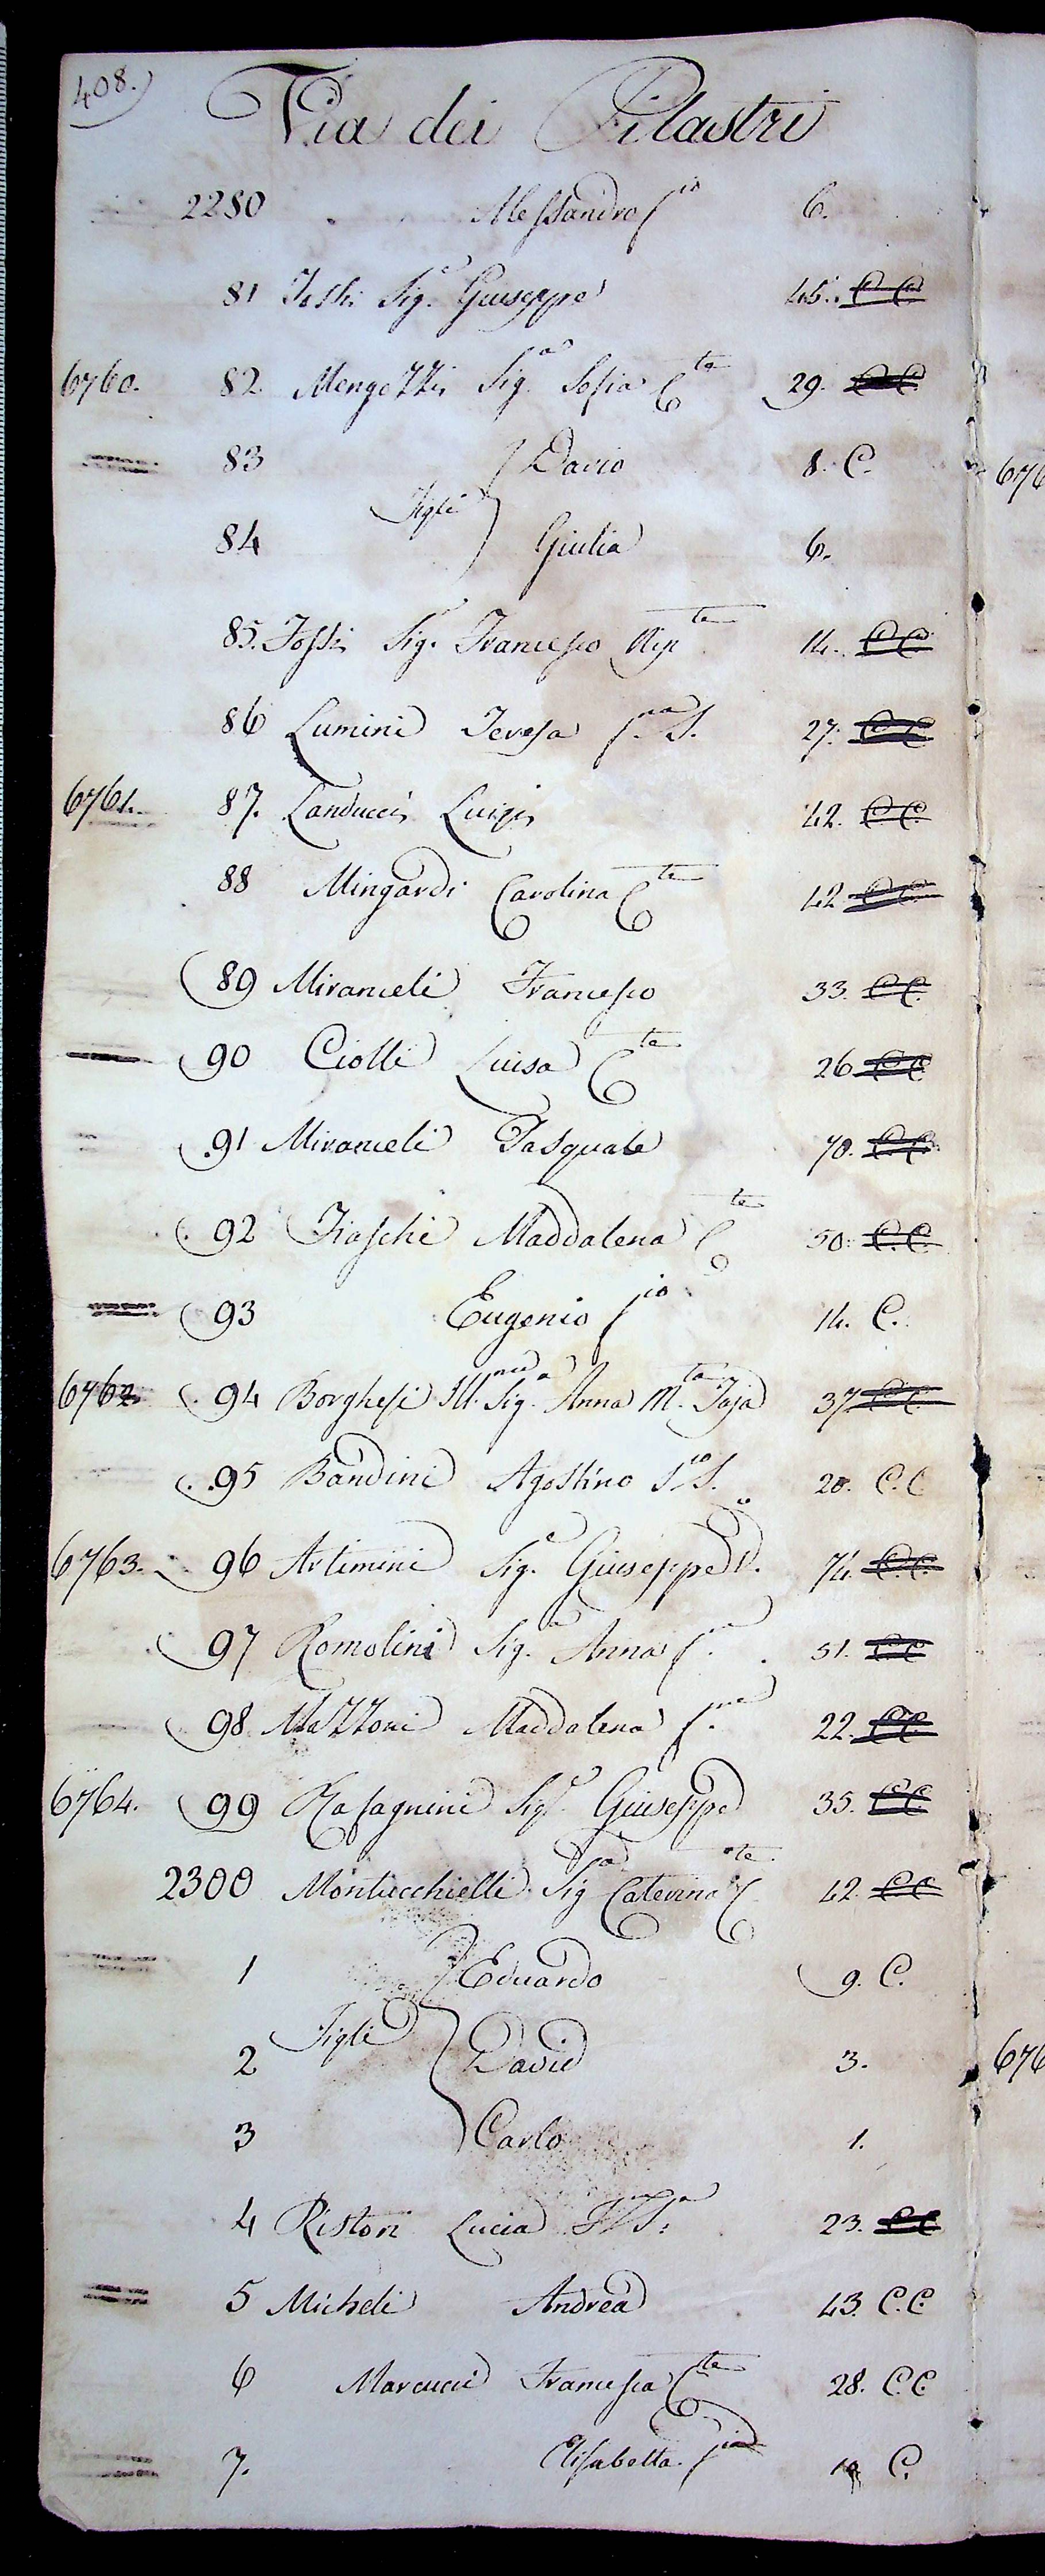 408.)
Via dei Pilastri
2280 Alessandro f.io 6.
81 Tosti Sig.e Giuseppe 45. C C
6760. 82. Mengozzi Sig.a Sofia C.ta 29. C C
83 David 8. C.
Figli
84 Giulia 6.
85. Tossi Sig.e Francesco Nip.te 14. C C
86 Lumini Teresa f.na S. 27. C C
6761. 87. Landucci Luigi 42. C C
88 Mingardi Carolina C.te 42. C C
89 Miranceli Francesco 33. C C
90 Ciolli Luisa C.te 26. C C
91 Miranceli Pasquale 70. C. C.
92 Fiaschi Maddalena C.te 50. C. C.
93 Eugenio f.io 14. C.
6762 94 Borghesi Ill.ma Sig.a Anna M.ta 37. C C
95 Bandini Agostino S. 20. C. C
6763. 96 Artimini Sig.e Giuseppe V.o 74. C. C.
97 Romolini Sig.a Anna f.a 51. C C
98 Mazzoni Maddalena 22. C C
6764. 99 Rasagnini Sig.e Giuseppe 35. C C
2300 Montucchielli Sig.a Caterina C.te 42. C C
1 Eduardo 9. C.
Figli
2 David 3.
3 Carlo 1.
4 Ristori Lucia 23. C C
5 Micheli Andrea 43. C. C
6 Marcucci Francesca C.te 28. C. C
7. Elisabetta f.ia C.
676
676